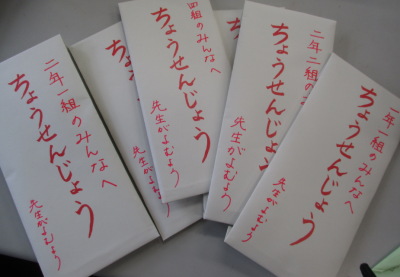 二年一組のみんなへ
ちょうせんじょう
先生がよむよう
ちょうせん
がよむよう
組のみんなへ
ちょうせんじょう
先生がよむよう
二年二組のみんなへ
ちょうせんじょ
先生がよむよう
年一組のみんなへ
ちょうせんじょう
先生がよむよう